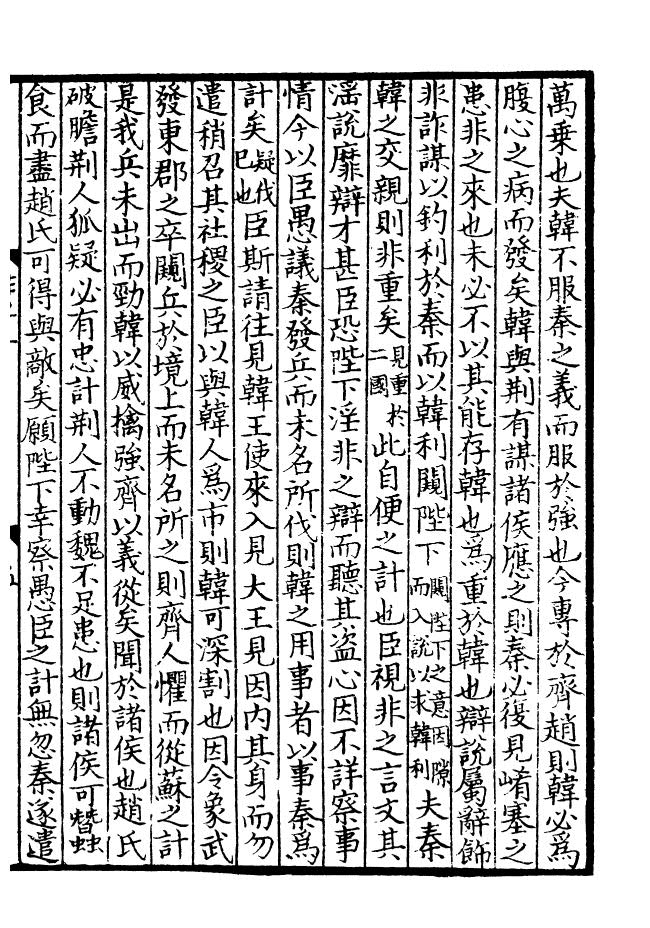 萬乗也夫韓不服秦之義而服於強也今專於齊趙則韓必爲
腹心之病而發矣韓與荆有謀諸侯應之則秦必復見崤塞之
患非之來也未必不以其能存韓也爲重於韓也辯說屬辭飾
非詐謀以釣利於秦而以韓利闚陛下闚陛下之意因隙而入說以求韓利夫秦
韓之交親則非重矣見重於二國此自便之計也臣視非之言文其
淫說靡辯才甚臣恐陛下淫非之辯而聽其盗心因不詳察事
情今以臣愚議秦發兵而未名所伐則韓之用事者以事秦爲
計矣疑伐已也臣斯請往見韓王使來入見大王見因内其身而勿
遣稍召其社稷之臣以與韓人爲市則韓可深割也因令象武
發東郡之卒闚兵於境上而未名所之則齊人懼而從蘇之計
是我兵未出而勁韓以威擒強齊以義從矣聞於諸侯也趙氏
破膽荆人狐疑必有忠計荆人不動魏不足患也則諸侯可蠶
食而盡趙氏可得與敵矣願陛下幸察愚臣之計無忽秦遂遣